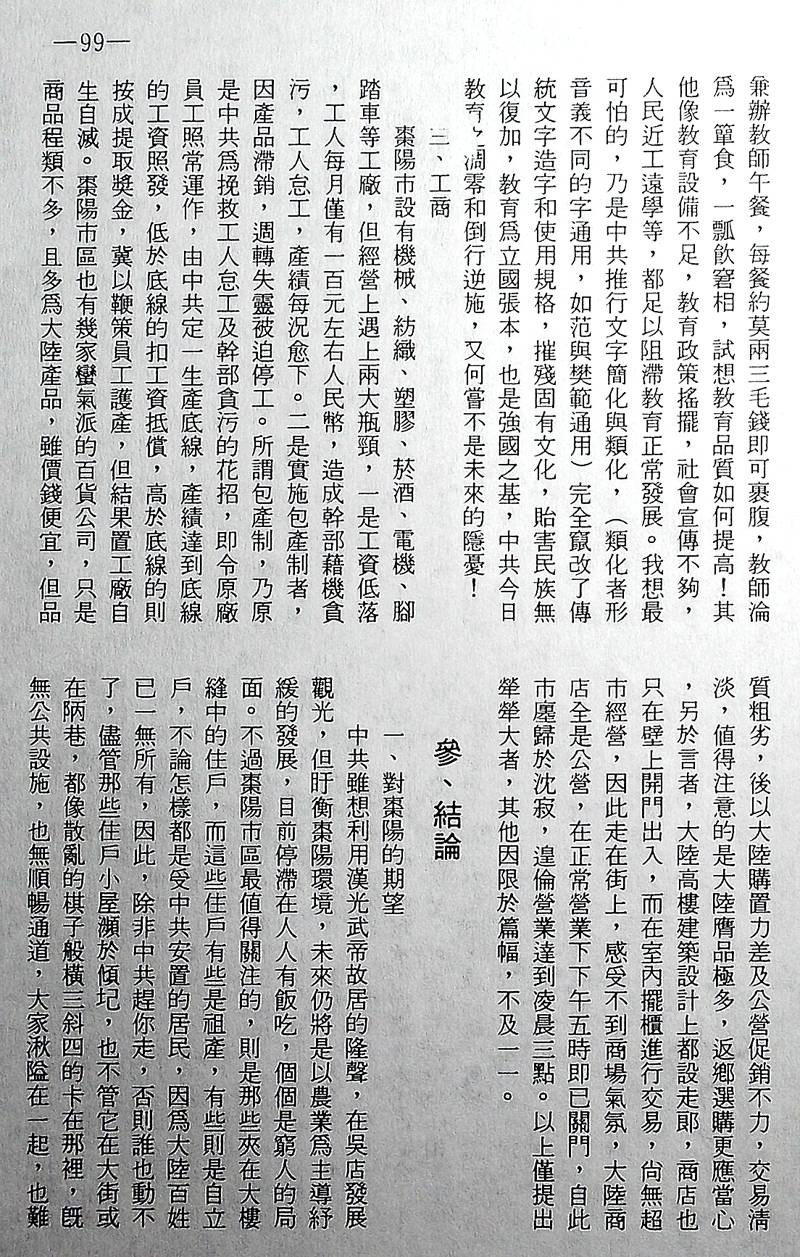 —99—
兼辦教師午餐，每餐約莫兩三毛錢即可裹腹，教師淪
爲一簞食，一瓢飲窘相，試想教育品質如何提高！其
他像教育設備不足，教育政策搖擺，社會宣傳不夠，
人民近工遠學等，都足以阻滯教育正常發展。我想最
可怕的，乃是中共推行文字簡化與類化，（類化者形
音義不同的字通用，如范與樊範通用）完全竄改了傳
統文字造字和使用規格，摧殘固有文化，貽害民族無
以復加，教育爲立國張本，也是強國之基，中共今日
教育之凋零和倒行逆施，又何嘗不是未來的隱憂！
三、工商
棗陽市設有機械、紡織、塑膠、菸酒、電機、腳
踏車等工廠，但經營上遇上兩大瓶頸，一是工資低落
，工人每月僅有一百元左右人民幣，造成幹部藉機貪
污，工人怠工，產績每況愈下。二是實施包產制者，
因產品滯銷，週轉失靈被迫停工。所謂包產制，乃原
是中共爲挽救工人怠工及幹部貪污的花招，即令原廠
員工照常運作，由中共定一生產底線，產績達到底線
的工資照發，低於底線的扣工資抵償，高於底線的則
按成提取獎金，冀以鞭策員工護產，但結果置工廠自
生自滅。棗陽市區也有幾家蠻氣派的百貨公司，只是
商品程類不多，且多爲大陸產品，雖價錢便宜，但品
質粗劣，後以大陸購置力差及公營促銷不力，交易清
淡，值得注意的是大陸贋品極多，返鄉選購更應當心
，另於言者，大陸高樓建築設計上都設走郎，商店也
只在壁上開門出入，而在室內擺櫃進行交易，尙無超
市經營，因此走在街上，感受不到商場氣氛，大陸商
店全是公營，在正常營業下下午五時即已關門，自此
市廛歸於沈寂，遑倫營業達到凌晨三點。以上僅提出
犖犖大者，其他因限於篇幅，不及一一。
參、結論
一、對棗陽的期望
中共雖想利用漢光武帝故居的隆聲，在吳店發展
觀光，但盱衡棗陽環境，未來仍將是以農業爲主導紓
緩的發展，目前停滯在人人有飯吃，個個是窮人的局
面。不過棗陽市區最值得關注的，則是那些夾在大樓
縫中的住戶，而這些住戶有些是祖產，有些則是自立
戶，不論怎樣都是受中共安置的居民，因爲大陸百姓
已一無所有，因此，除非中共趕你走，否則誰也動不
了，儘管那些住戶小屋瀕於傾圮，也不管它在大街或
在陋巷，都像散亂的棋子般橫三斜四的卡在那裡，旣
無公共設施，也無順暢通道，大家湫隘在一起，也難